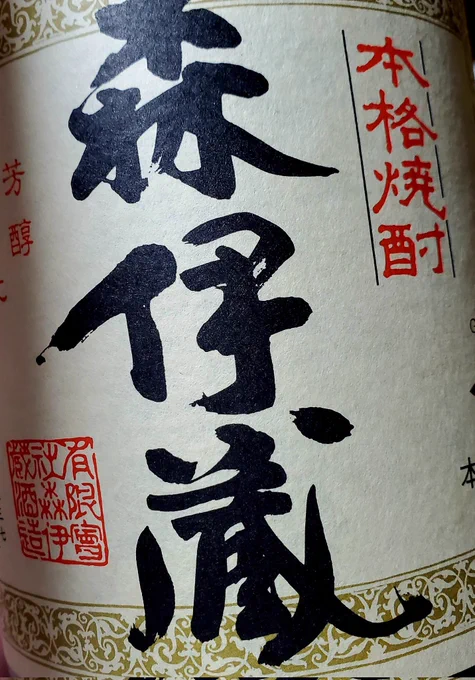 本格焼酎
森伊蔵
芳醇
有限會
社森伊
蔵酒造